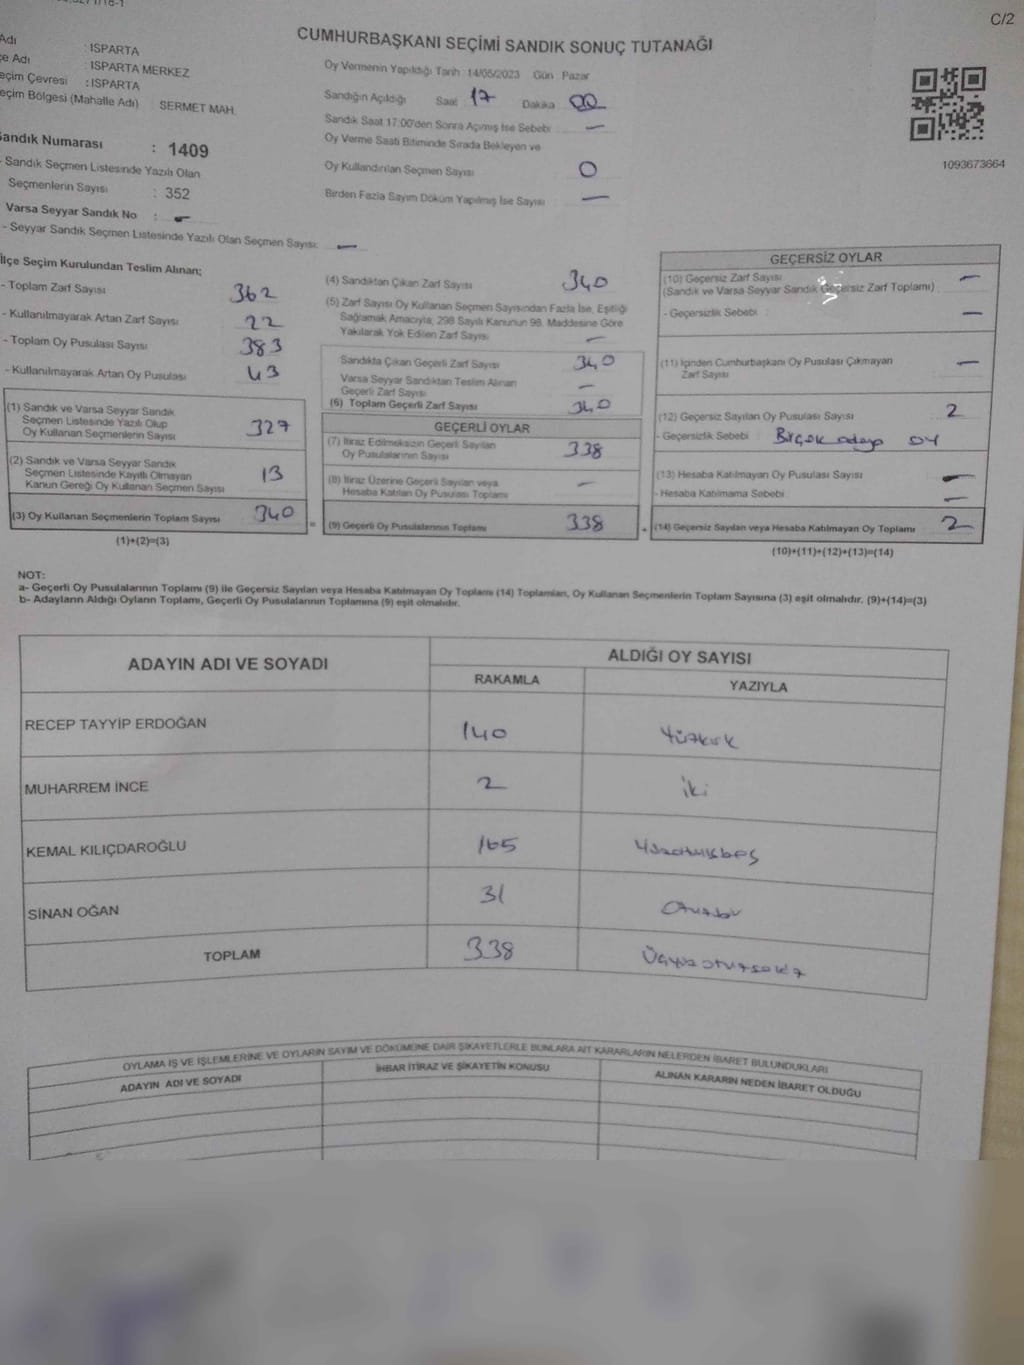 C/2
CUMHURBAŞKANI SEÇİMİ SANDIK SONUÇ TUTANAĞI
Adı : ISPARTA
çe Adı : ISPARTA MERKEZ
eçim Çevresi : ISPARTA
eçim Bölgesi (Mahalle Adı) : SERMET MAH.
andık Numarası : 1409
- Sandık Seçmen Listesinde Yazılı Olan
Seçmenlerin Sayısı : 352
Varsa Seyyar Sandık No : -
- Seyyar Sandık Seçmen Listesinde Yazılı Olan Seçmen Sayısı: -
Oy Vermenin Yapıldığı Tarih : 14/05/2023 Gün : Pazar
Sandığın Açıldığı Saat 17 Dakika 00
Sandık Saat 17:00'den Sonra Açımış İse Sebebi : -
Oy Verme Saati Bitiminde Sırada Bekleyen ve
Oy Kullandırılan Seçmen Sayısı : 0
Birden Fazla Sayım Döküm Yapılmış İse Sayısı : -
1093673664
İlçe Seçim Kurulundan Teslim Alınan;
- Toplam Zarf Sayısı 362
- Kullanılmayarak Artan Zarf Sayısı 22
- Toplam Oy Pusulası Sayısı 383
- Kullanılmayarak Artan Oy Pusulası 43
(1) Sandık ve Varsa Seyyar Sandık
Seçmen Listesinde Yazılı Olup
Oy Kullanan Seçmenlerin Sayısı 327
(2) Sandık ve Varsa Seyyar Sandık
Seçmen Listesinde Kayıtlı Olmayan
Kanun Gereği Oy Kullanan Seçmen Sayısı 13
(3) Oy Kullanan Seçmenlerin Toplam Sayısı 340
(1)+(2)=(3)
(4) Sandıktan Çıkan Zarf Sayısı 340
(5) Zarf Sayısı Oy Kullanan Seçmen Sayısından Fazla İse, Eşitliği
Sağlamak Amacıyla, 298 Sayılı Kanunun 98. Maddesine Göre
Yakılarak Yok Edilen Zarf Sayısı -
Sandıkta Çıkan Geçerli Zarf Sayısı 340
Varsa Seyyar Sandıktan Teslim Alınan
Geçerli Zarf Sayısı -
(6) Toplam Geçerli Zarf Sayısı 340
GEÇERLİ OYLAR
(7) İtiraz Edilmeksizin Geçerli Sayılan
Oy Pusulalarının Sayısı 338
(8) İtiraz Üzerine Geçerli Sayılan veya
Hesaba Katılan Oy Pusulası Toplamı -
= (9) Geçerli Oy Pusulalarının Toplamı 338
GEÇERSİZ OYLAR
(10) Geçersiz Zarf Sayısı -
(Sandık ve Varsa Seyyar Sandık Geçersiz Zarf Toplamı) :
- Geçersizlik Sebebi : -
(11) İçinden Cumhurbaşkanı Oy Pusulası Çıkmayan
Zarf Sayısı -
(12) Geçersiz Sayılan Oy Pusulası Sayısı 2
- Geçersizlik Sebebi : Birçok adaya oy
(13) Hesaba Katılmayan Oy Pusulası Sayısı -
- Hesaba Katılmama Sebebi : -
+ (14) Geçersiz Sayılan veya Hesaba Katılmayan Oy Toplamı 2
(10)+(11)+(12)+(13)=(14)
NOT:
a- Geçerli Oy Pusulalarının Toplamı (9) ile Geçersiz Sayılan veya Hesaba Katılmayan Oy Toplamı (14) Toplamları, Oy Kullanan Seçmenlerin Toplam Sayısına (3) eşit olmalıdır. (9)+(14)=(3)
b- Adayların Aldığı Oyların Toplamı, Geçerli Oy Pusulalarının Toplamına (9) eşit olmalıdır.
ADAYIN ADI VE SOYADI ALDIĞI OY SAYISI
RAKAMLA YAZIYLA
RECEP TAYYİP ERDOĞAN 140 Yüzkırk
MUHARREM İNCE 2 iki
KEMAL KILIÇDAROĞLU 165 Yüzatmışbeş
SİNAN OĞAN 31 Otuzbir
TOPLAM 338 Üçyüzotuzsekiz
OYLAMA İŞ VE İŞLEMLERİNE VE OYLARIN SAYIM VE DÖKÜMÜNE DAİR ŞİKAYETLERLE BUNLARA AİT KARARLARIN NELERDEN İBARET BULUNDUKLARI
ADAYIN ADI VE SOYADI İHBAR İTİRAZ VE ŞİKAYETİN KONUSU ALINAN KARARIN NEDEN İBARET OLDUĞU